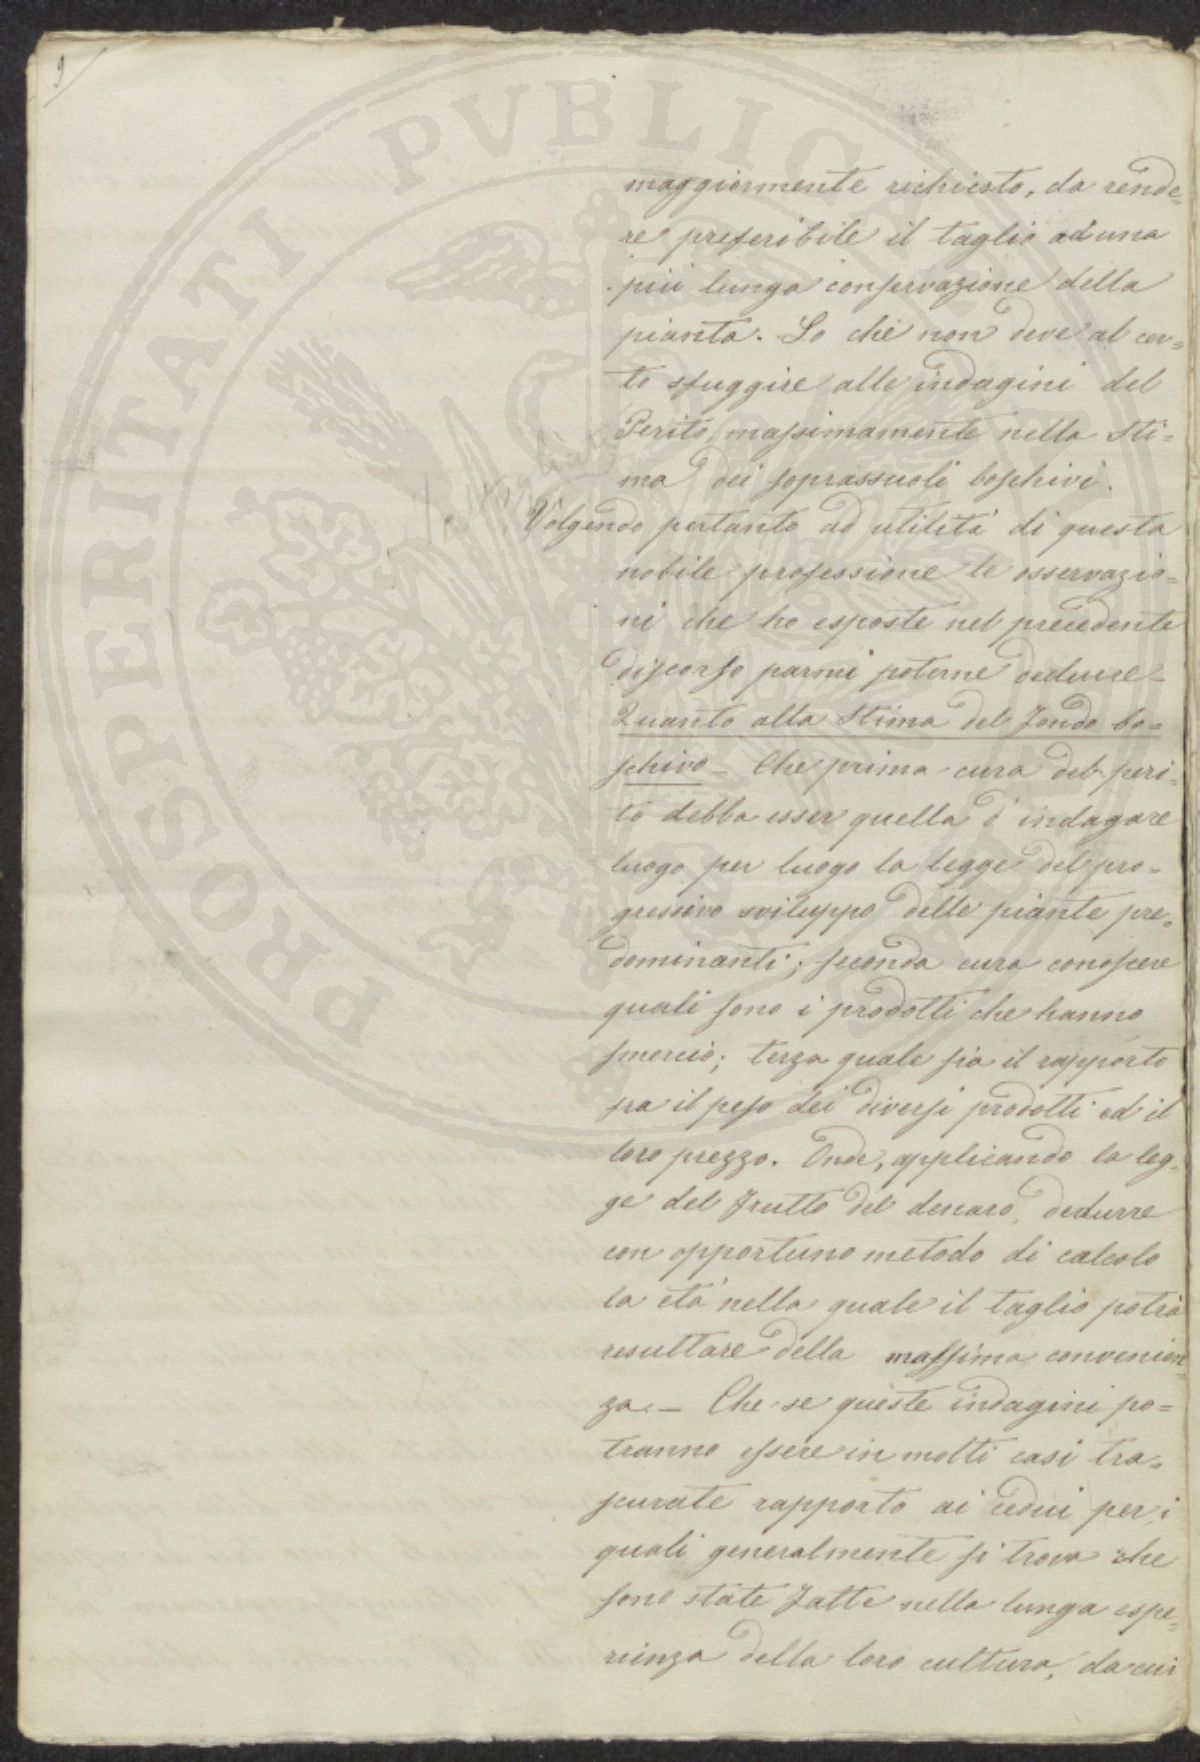 9
PROSPERITATI PUBLICAE
maggiormente richiesto, da rende=
re preferibile il taglio ad una
più lunga conservazione della
pianta. Lo che non deve al cer=
to sfuggire alle indagini del
Perito, massimamente nella Sti=
ma dei soprassuoli boschivi.
Volgendo pertanto ad utilità di questa
nobile professione le osservazio=
ni che ho esposte nel precedente
discorso parmi poterne dedurre=
Quanto alla Stima del fondo bo=
schivo – Che prima cura del peri=
to debba esser quella d'indagare
luogo per luogo la legge del pro=
gressivo sviluppo delle piante pre=
dominanti; seconda cura conoscere
quali sono i prodotti che hanno
smercio; terza quale sia il rapporto
fra il peso dei diversi prodotti ed il
loro prezzo. Onde, applicando la leg=
ge del frutto del denaro, dedurre
con opportuno metodo di calcolo
la età nella quale il taglio potrà
resultare della massima convenien
za. – Che se queste indagini po=
tranno essere in molti casi tra=
scurate rapporto ai cedui per i
quali generalmente si trova che
sono state fatte nella lunga espe=
rienza della loro cultura, da cui